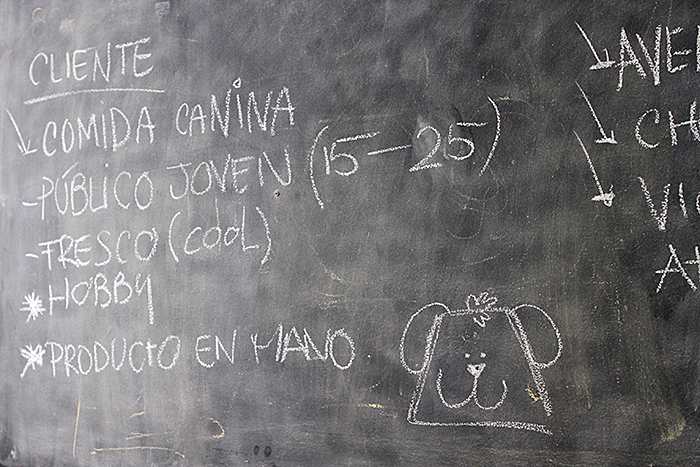 CLIENTE
COMIDA CANINA
-PÚBLICO JOVEN (15-25)
-FRESCO (COOL)
*HOBBY
*PRODUCTO EN MANO